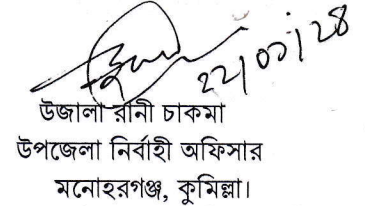 ২২/০১/২৪
উজালা রানী চাকমা
উপজেলা নির্বাহী অফিসার
মনোহরগঞ্জ, কুমিল্লা।